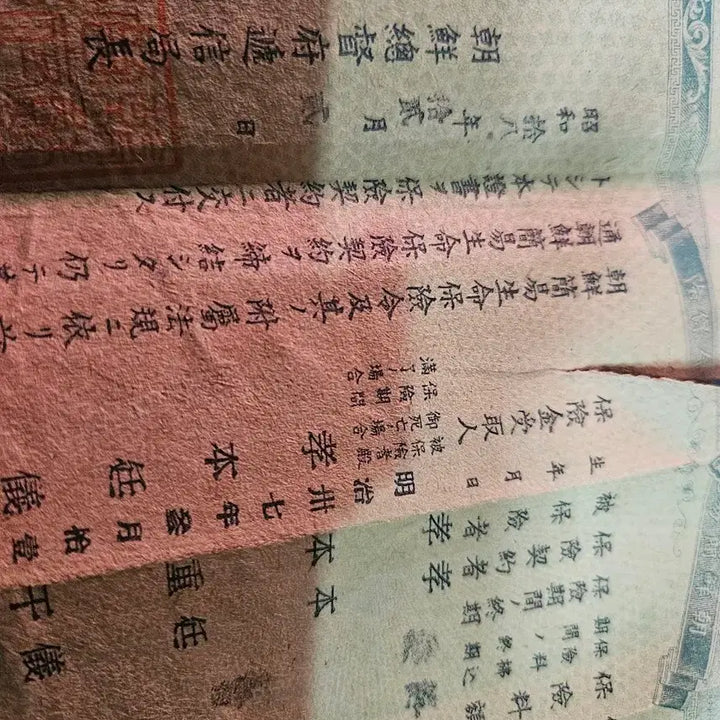 保險料
保險料拂込
期間ノ終期
保險期間ノ終期
保險契約者 孝本廷儀
被保險者 孝本重千
生年月日 明治卅七年 月拾壹
保險金受取人 孝本廷儀
被保險者殿
御死亡ノ場合
保險期間
滿了ノ場合
朝鮮簡易生命保險令及其ノ附屬法規ニ依リ
通朝鮮簡易生命保險契約ヲ締結シタリ仍テ
トシテ本證書ヲ保險契約者ニ交付ス
昭和拾八年拾貳月貳 日
朝鮮總督府遞信局長